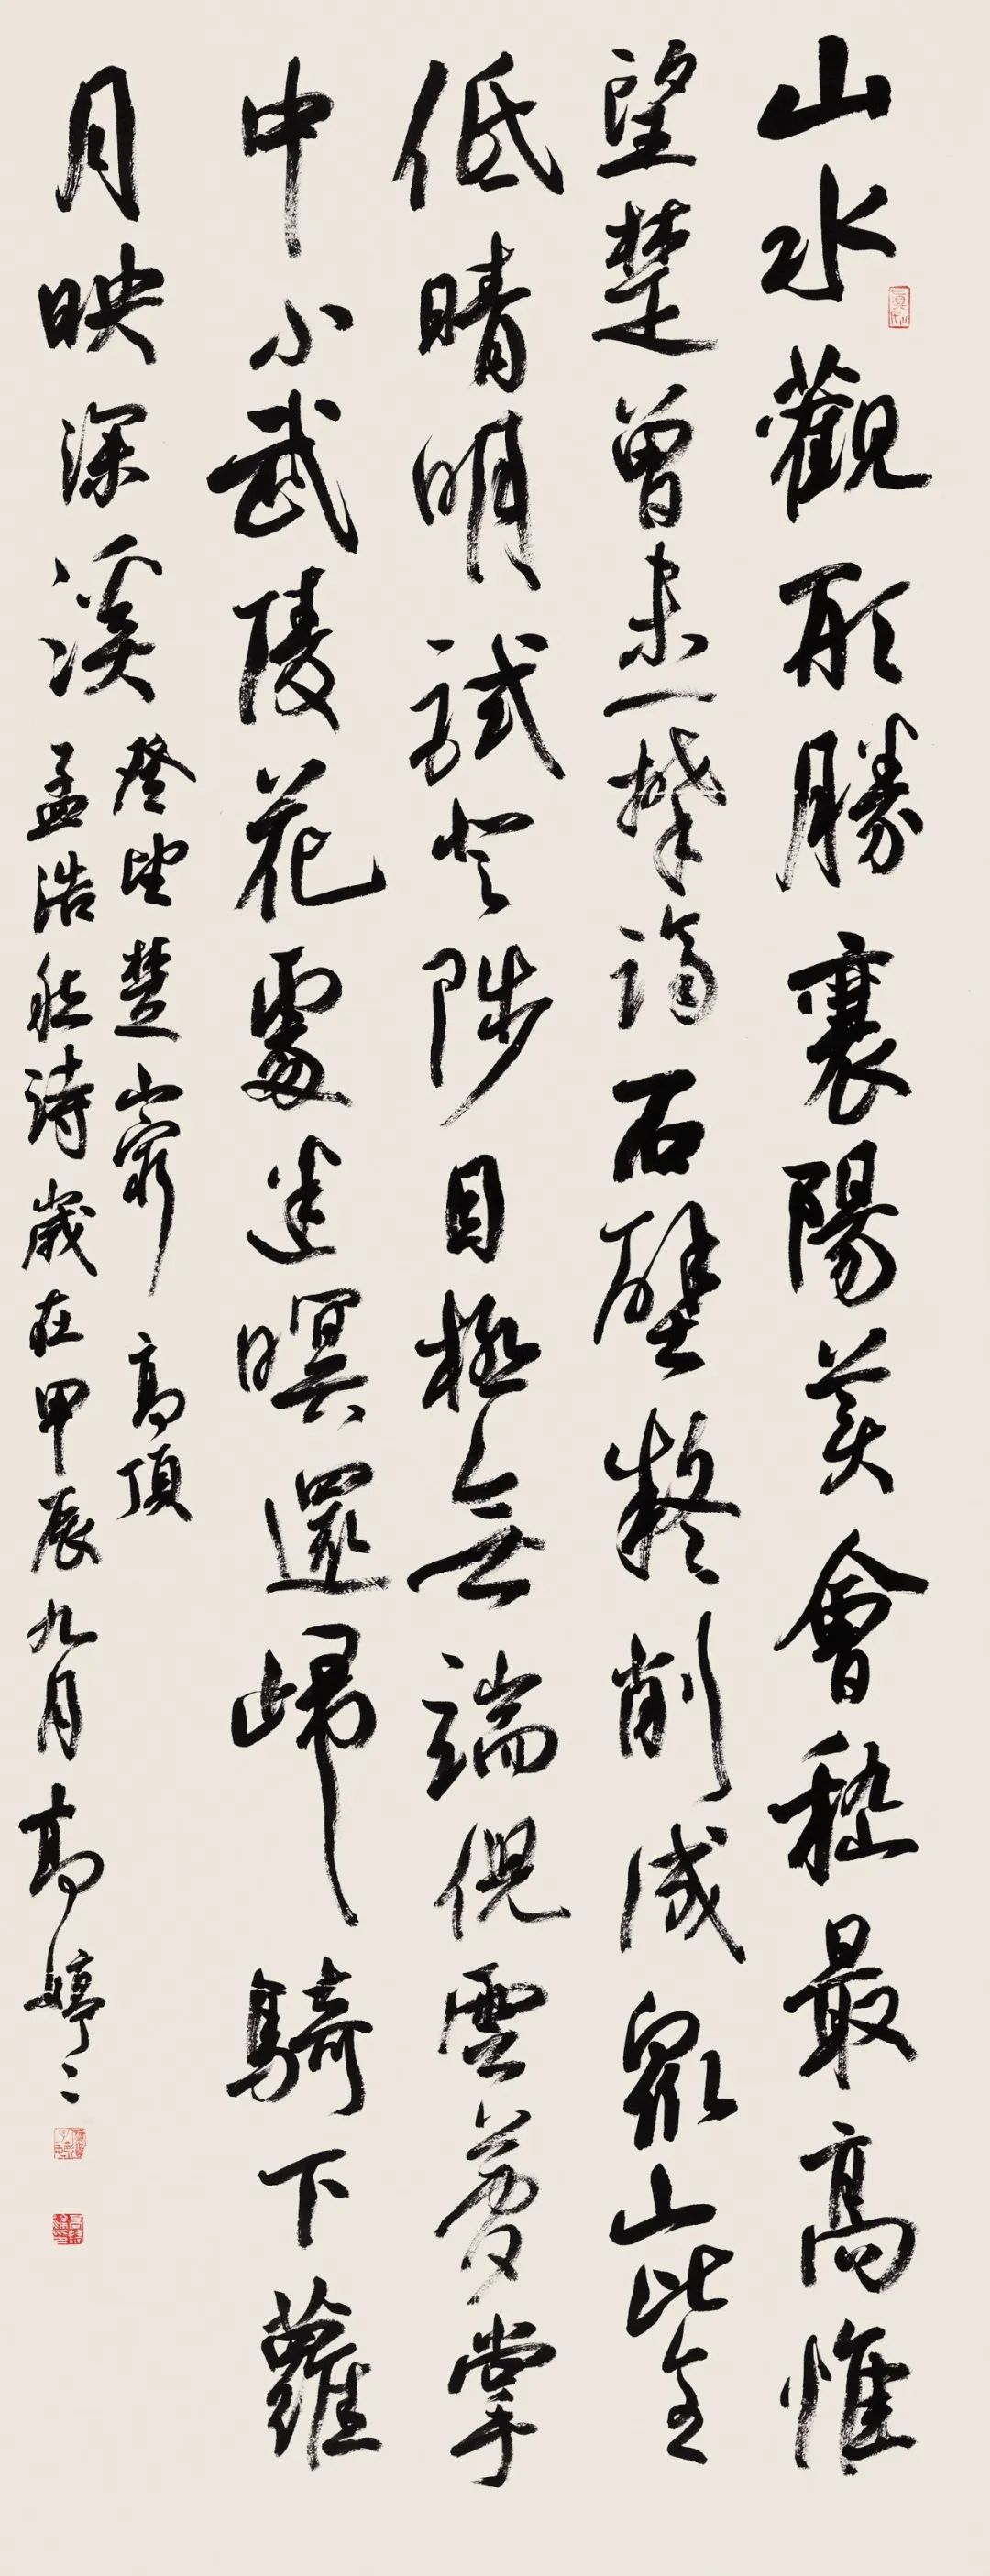 山水觀形勝襄陽美會稽最高惟
望楚曾未一攀躋石壁疑削成眾山比全
低晴明試登陟目極無端倪雲夢掌
中小武陵花處迷暝還歸騎下蘿
月映深溪
登望楚山最高頂
孟浩然詩歲在甲辰九月高婷婷